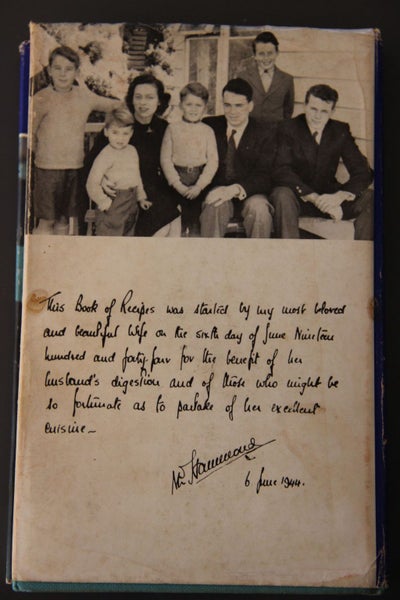 This Book of Recipes was started by my most beloved
and beautiful Wife on the sixth day of June Nineteen
hundred and forty-four for the benefit of her
husband's digestion and of those who might be
so fortunate as to partake of her excellent
cuisine –
Hammond
6 June 1944.